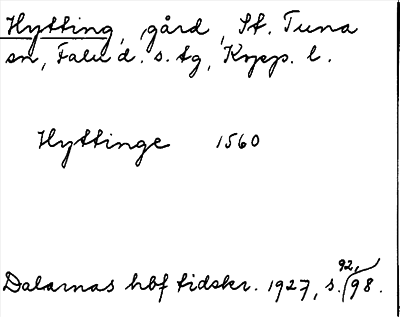 Hytting, gård, St. Tuna
sn, Falu d. s. tg, Kopp. l.
Hyttinge 1560
Dalarnas hbf tidskr. 1927, s. 92, 98.